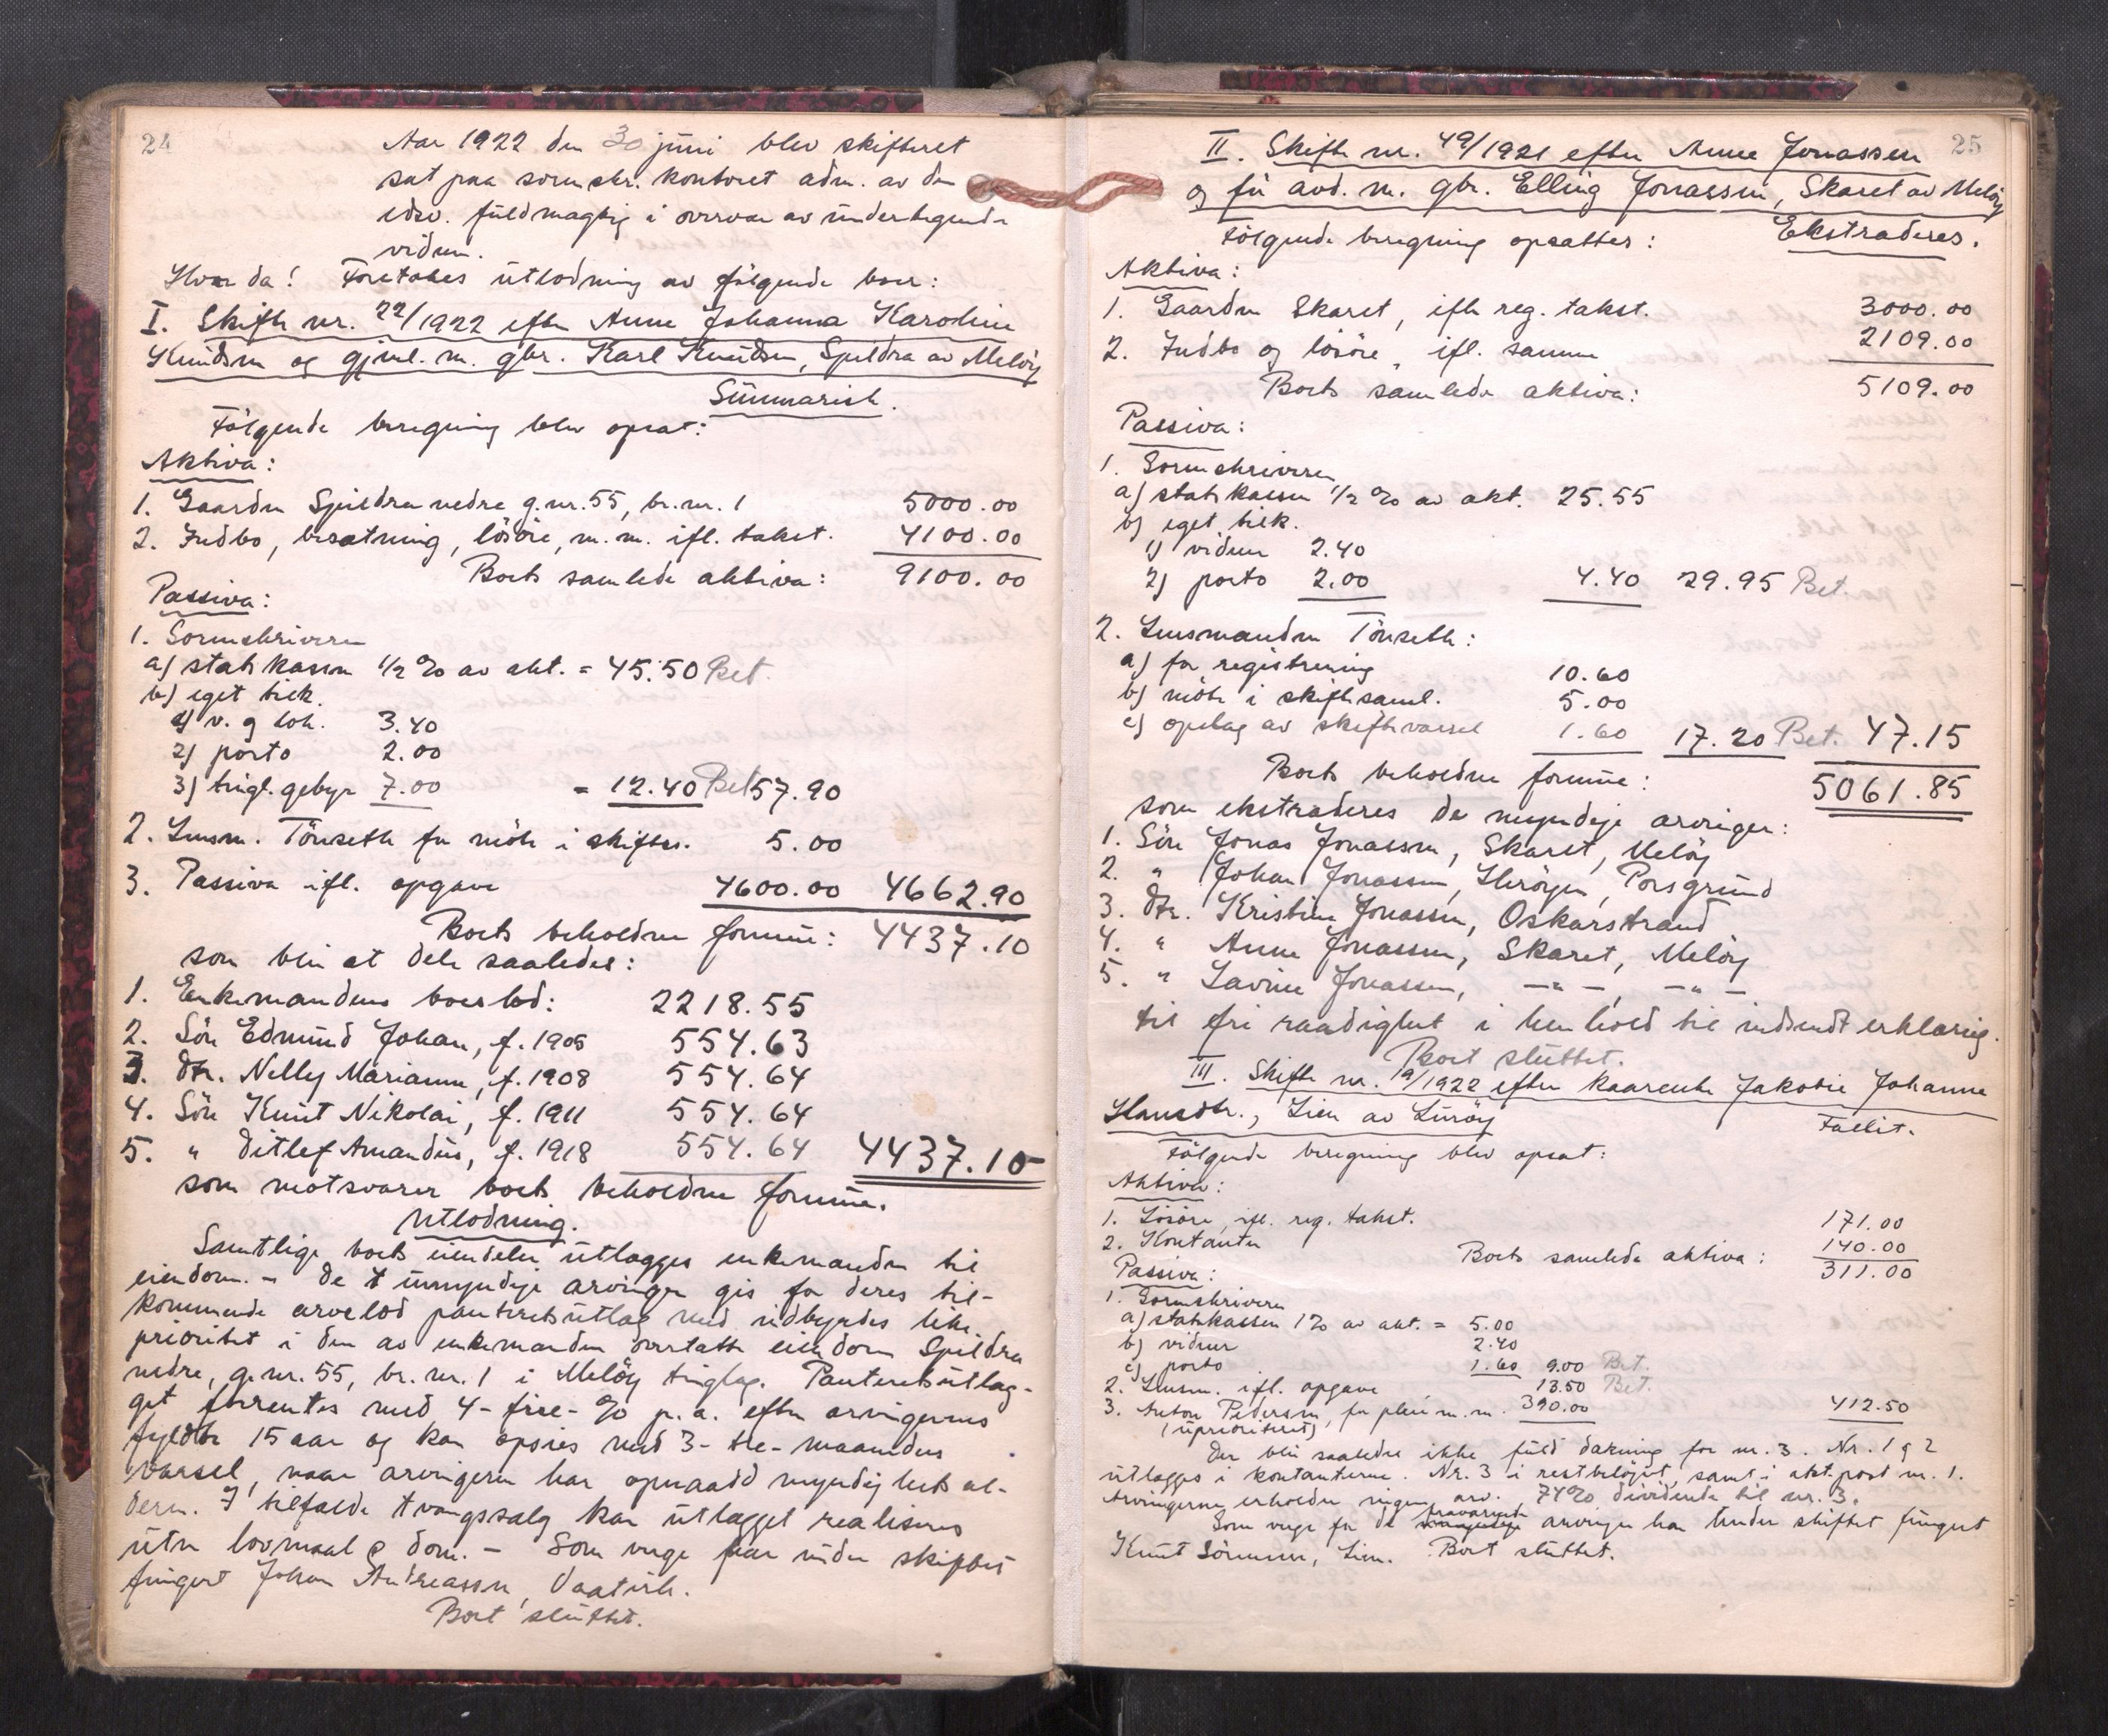 24
Aar 1922 den 30 juni blev skifteret
sat paa sorenskr. kontoret adm. av den
edsv. fuldmægtig i overvær av undertegnede
vidner.
Hvorda! Foretokes utlodning av følgende boer:
I. Skifte nr. 22/1922 efter Anne Johanna Karoline
Knudsen og gjenl. m. gbr. Karl Knudsen, Spildra av Meløy
Summarisk.
Følgende beregning blev opsat:
Aktiva:
1. Gaarden Spildra nedre g.nr. 55, br.nr. 1 5000.00
2. Indbo, besætning, løsøre, m.m. ifl. takst. 4100.00
Boets samlede aktiva: 9100.00
Passiva:
1. Sorenskriveren
a) statskassen 1/2 % av akt. = 45.50 Bet.
b) eget tilk.
1) v. og dok. 3.40
2) porto 2.00
3) tingl. gebyr 7.00 = 12.40 Bet 57.90
2. Lensm. Tönseth for møte i skiftes. 5.00
3. Passiva ifl. opgave 4600.00 4662.90
Boets beholdne formue: 4437.10
som blir at dele saaledes:
1. Enkemandens boeslod: 2218.55
2. Søn Edmund Johan, f. 1905 554.63
3. Dtr. Nelly Marianne, f. 1908 554.64
4. Søn Knut Nikolai, f. 1911 554.64
5. " Ditlef Amandus, f. 1918 554.64 4437.10
som motsvarer boets beholdne formue.
Utlodning.
Samtlige boets eiendeler utlægges enkemanden til
eiendom. - De 4 umyndige arvinger gis for deres til-
kommende arvelod panteretsutlæg med indbyrdes like
prioritet i den av enkemanden overtatte eiendom Spildra
nedre, g.nr. 55, br. nr. 1 i Meløy tinglag. Panteretsutlæg-
get forrentes med 4 - fire - % p.a. efter arvingernes
fyldte 15 aar og kan opsies med 3 - tre - maaneders
varsel, naar arvingen har opnaadd myndighets al-
deren. I tilfælde tvangssalg kan utlægget realiseres
uten lovmaal & dom. - Som verge har under skiftet
fungert Johan Andreassen, Vaatvik.
Boet sluttet.
25
II. Skifte nr. 49/1921 efter Anne Jonassen
og før avd. m. gbr. Elling Jonassen, Skaret av Meløy
Ekstraderes.
Følgende beregning opsattes:
Aktiva:
1. Gaarden Skaret, ifl. reg. takst. 3000.00
2. Indbo og løsøre, ifl. samme 2109.00
Boets samlede aktiva: 5109.00
Passiva:
1. Sorenskriveren
a) statskassen 1/2 % av akt. 25.55
b) eget tilk.
1) vidner 2.40
2) porto 2.00 4.40 29.95 Bet.
2. Lensmanden Tönseth:
a) for registrering 10.60
b) møte i skiftesaml. 5.00
c) opslag av skiftevarsel 1.60 17.20 Bet. 47.15
Boets beholdne formue: 5061.85
som ekstraderes de myndige arvinger:
1. Søn Jonas Jonassen, Skaret, Meløy
2. " Johan Jonassen, Porsgrund
3. Dtr. Kristine Jonassen, Oskarstrand
4. " Anne Jonassen, Skaret, Meløy
5. " Lavine Jonassen, - " -, - " -
til fri raadighet i henhold til indsendt erklæring.
Boet sluttet.
III. Skifte nr. 19/1922 efter kaarenke Jakobie Johanne
Hansdtr., Lien av Lurøy
Fallit.
Følgende beregning blev opsat:
Aktiva:
1. Løsøre, ifl. reg. takst. 171.00
2. Kontanter 140.00
Boets samlede aktiva: 311.00
Passiva:
1. Sorenskriveren
a) statskassen 1% av akt. = 5.00
b) vidner 2.40
c) porto 1.60 9.00 Bet.
2. Lensm. ifl. opgave 13.50 Bet.
3. Anton Pedersen, for pleie m.m. 390.00 412.50
(uprioritert)
Der blir saaledes ikke fuld dækning for nr. 3. Nr. 1 og 2
utlægges i kontanterne. Nr. 3 i restbeløpet, samt i akt. post nr. 1.
Arvingerne erholder ingen arv. 74% dividende til nr. 3.
fraværende
Som verge for de arvinger har under skiftet fungert
Knut Sørensen, Lien. Boet sluttet.